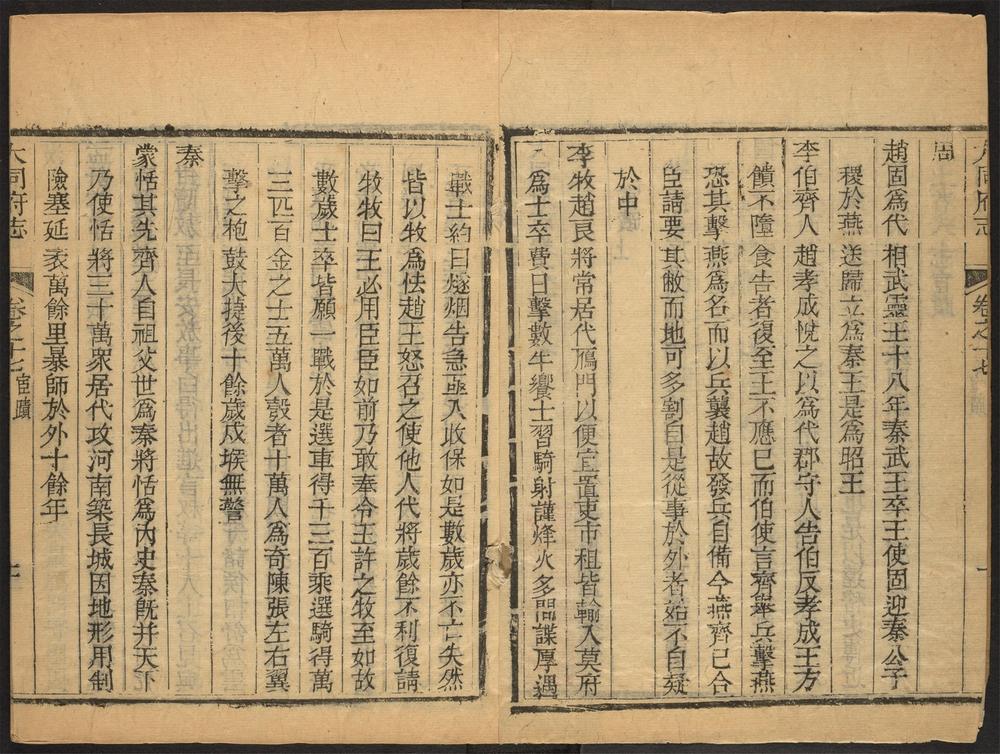 大同府志 卷之十七
周
趙固爲代 相武靈王十八年秦武王卒王使固迎秦公子
稷於燕 送歸立爲秦王是爲昭王
李伯齊人 趙孝成悅之以爲代郡守人告伯反孝成王方
饋不墮 食告者復至王不應已而伯使言齊舉兵擊燕
恐其擊 燕爲名而以兵襲趙故發兵自備今燕齊已合
臣請要 其敝而地可多割自是從事於外者始不自疑
於中
李牧趙良 將常居代鴈門以便宜置吏市租皆輸入莫府
爲士卒 費日擊數牛饗士習騎射謹烽火多間諜厚遇
戰士約曰燧烟告急亟入收保如是數歲亦不亡失然
皆以牧 爲怯趙王怒召之使他人代將歲餘不利復請
牧牧曰 王必用臣臣如前乃敢奉令王許之牧至如故
數歲士 卒皆願一戰於是選車得千三百乘選騎得萬
三匹百 金之士五萬人彀者十萬人爲奇陳張左右翼
擊之枹 鼓大捷後十餘歲戍堠無警
秦
蒙恬其先 齊人自祖父世爲秦將恬爲內史秦旣并天下
乃使恬 將三十萬衆居代攻河南築長城因地形用制
險塞延 袤萬餘里暴師於外十餘年
大同府志 卷之十七 宦蹟